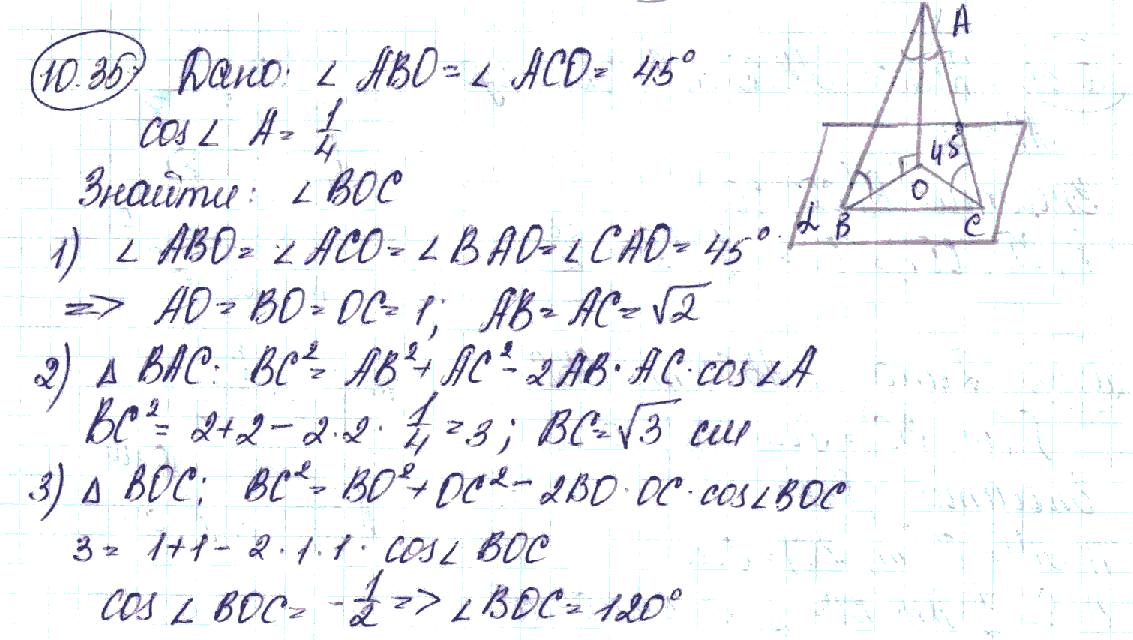 10.35 Дано: ∠ ABO = ∠ ACO = 45°
cos∠ A = 1/4
Знайти: ∠ BOC
1) ∠ ABO = ∠ ACO = ∠ BAO = ∠ CAO = 45°.
=> AO = BO = OC = 1; AB = AC = √2
2) Δ BAC: BC² = AB² + AC² - 2AB · AC · cos∠A
BC² = 2+2 - 2·2 · 1/4 = 3; BC = √3 см
3) Δ BOC; BC² = BO² + OC² - 2BO · OC · cos∠BOC
3 = 1+1 - 2·1·1 · cos∠ BOC
cos ∠ BOC = -1/2 => ∠ BOC = 120°
A
45°
O
α B C